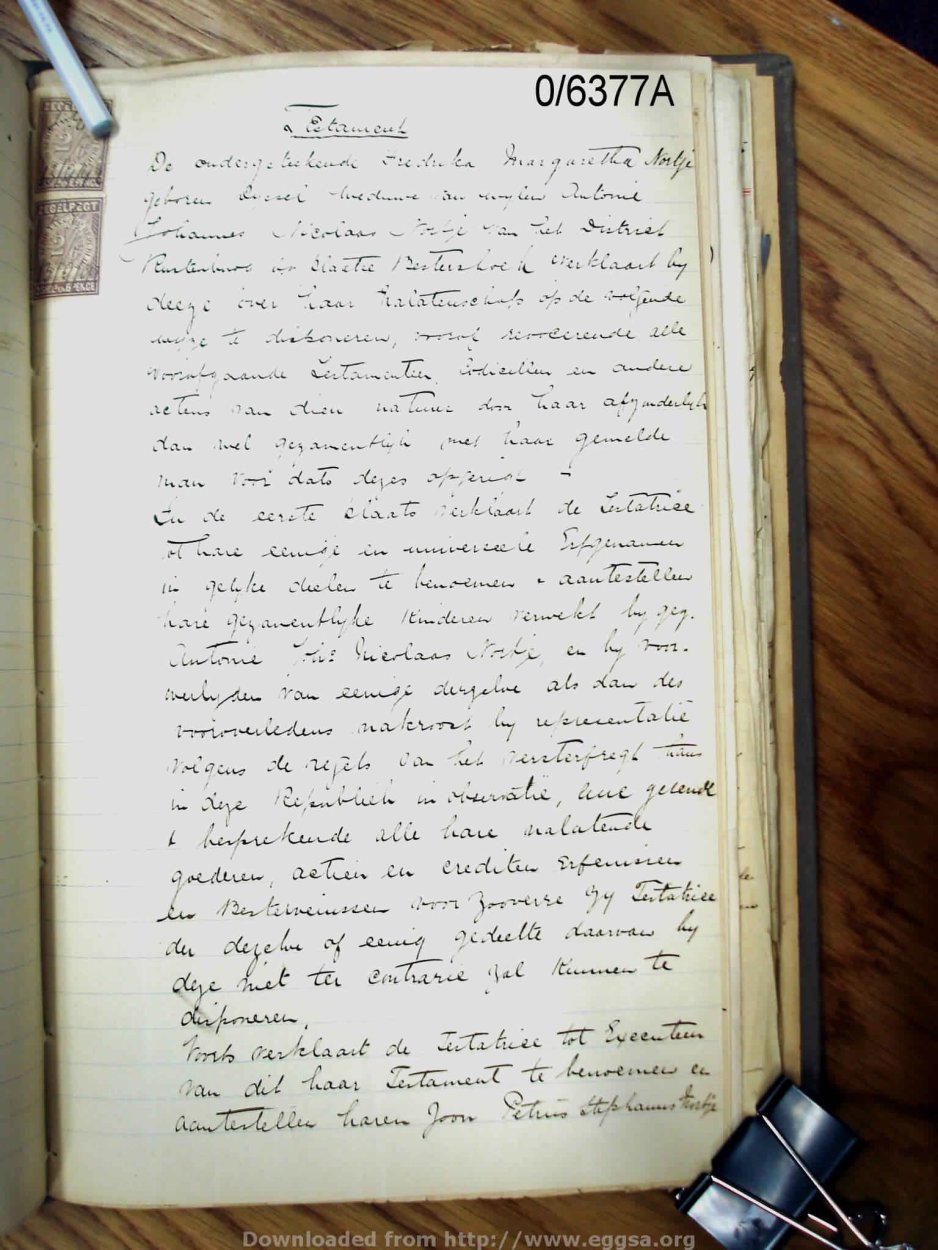 0/6377A
Testament
De ondergeteekende Fredrika Margaretha Nortje
geboren weduwe van wylen Antonie
Johannes Nicolaas Nortje van het District
Rustenburg op plaatse Bestershoek verklaart by
deeze over haar nalatenschap op de volgende
wijze te disponeren, vooraf revoceerende alle
voorafgaande Testamenten, Codicillen en andere
actens van dien natuur door haar afzonderlyk
dan wel gezamentlyk met haar gemelde
man voor dato dezes opgericht -
In de eerste plaats verklaart de Testatrice
tot hare eenige en universeele Erfgenamen
in gelyke deelen te benoemen & aantestellen
hare gezamentlyke Kinderen verwekt by geg.
Antonie Johs Nicolaas Nortje, en by voor-
overlyden van eenige derzelve als dan des
vooroverledens nakroost by representatie
volgens de regels van het versterfregt thans
in deze Republiek in observatie, hene gevende
& besprekende alle hare nalatende
goederen, actien en crediten Erfenissen
en Besterwenissen voor zooverre zy Testatrice
der dezelve of eenig gedeelte daarvan by
deze niet ter contrarie zal Kunnen te
disponeren,
Voorts verklaart de Testatrice tot Executeur
van dit haar Testament te benoemen en
aantestellen haren zoon Petrus Stephanus Nortje
ZEGELREGT
ZEGELREGT
Downloaded from http://www.eggsa.org